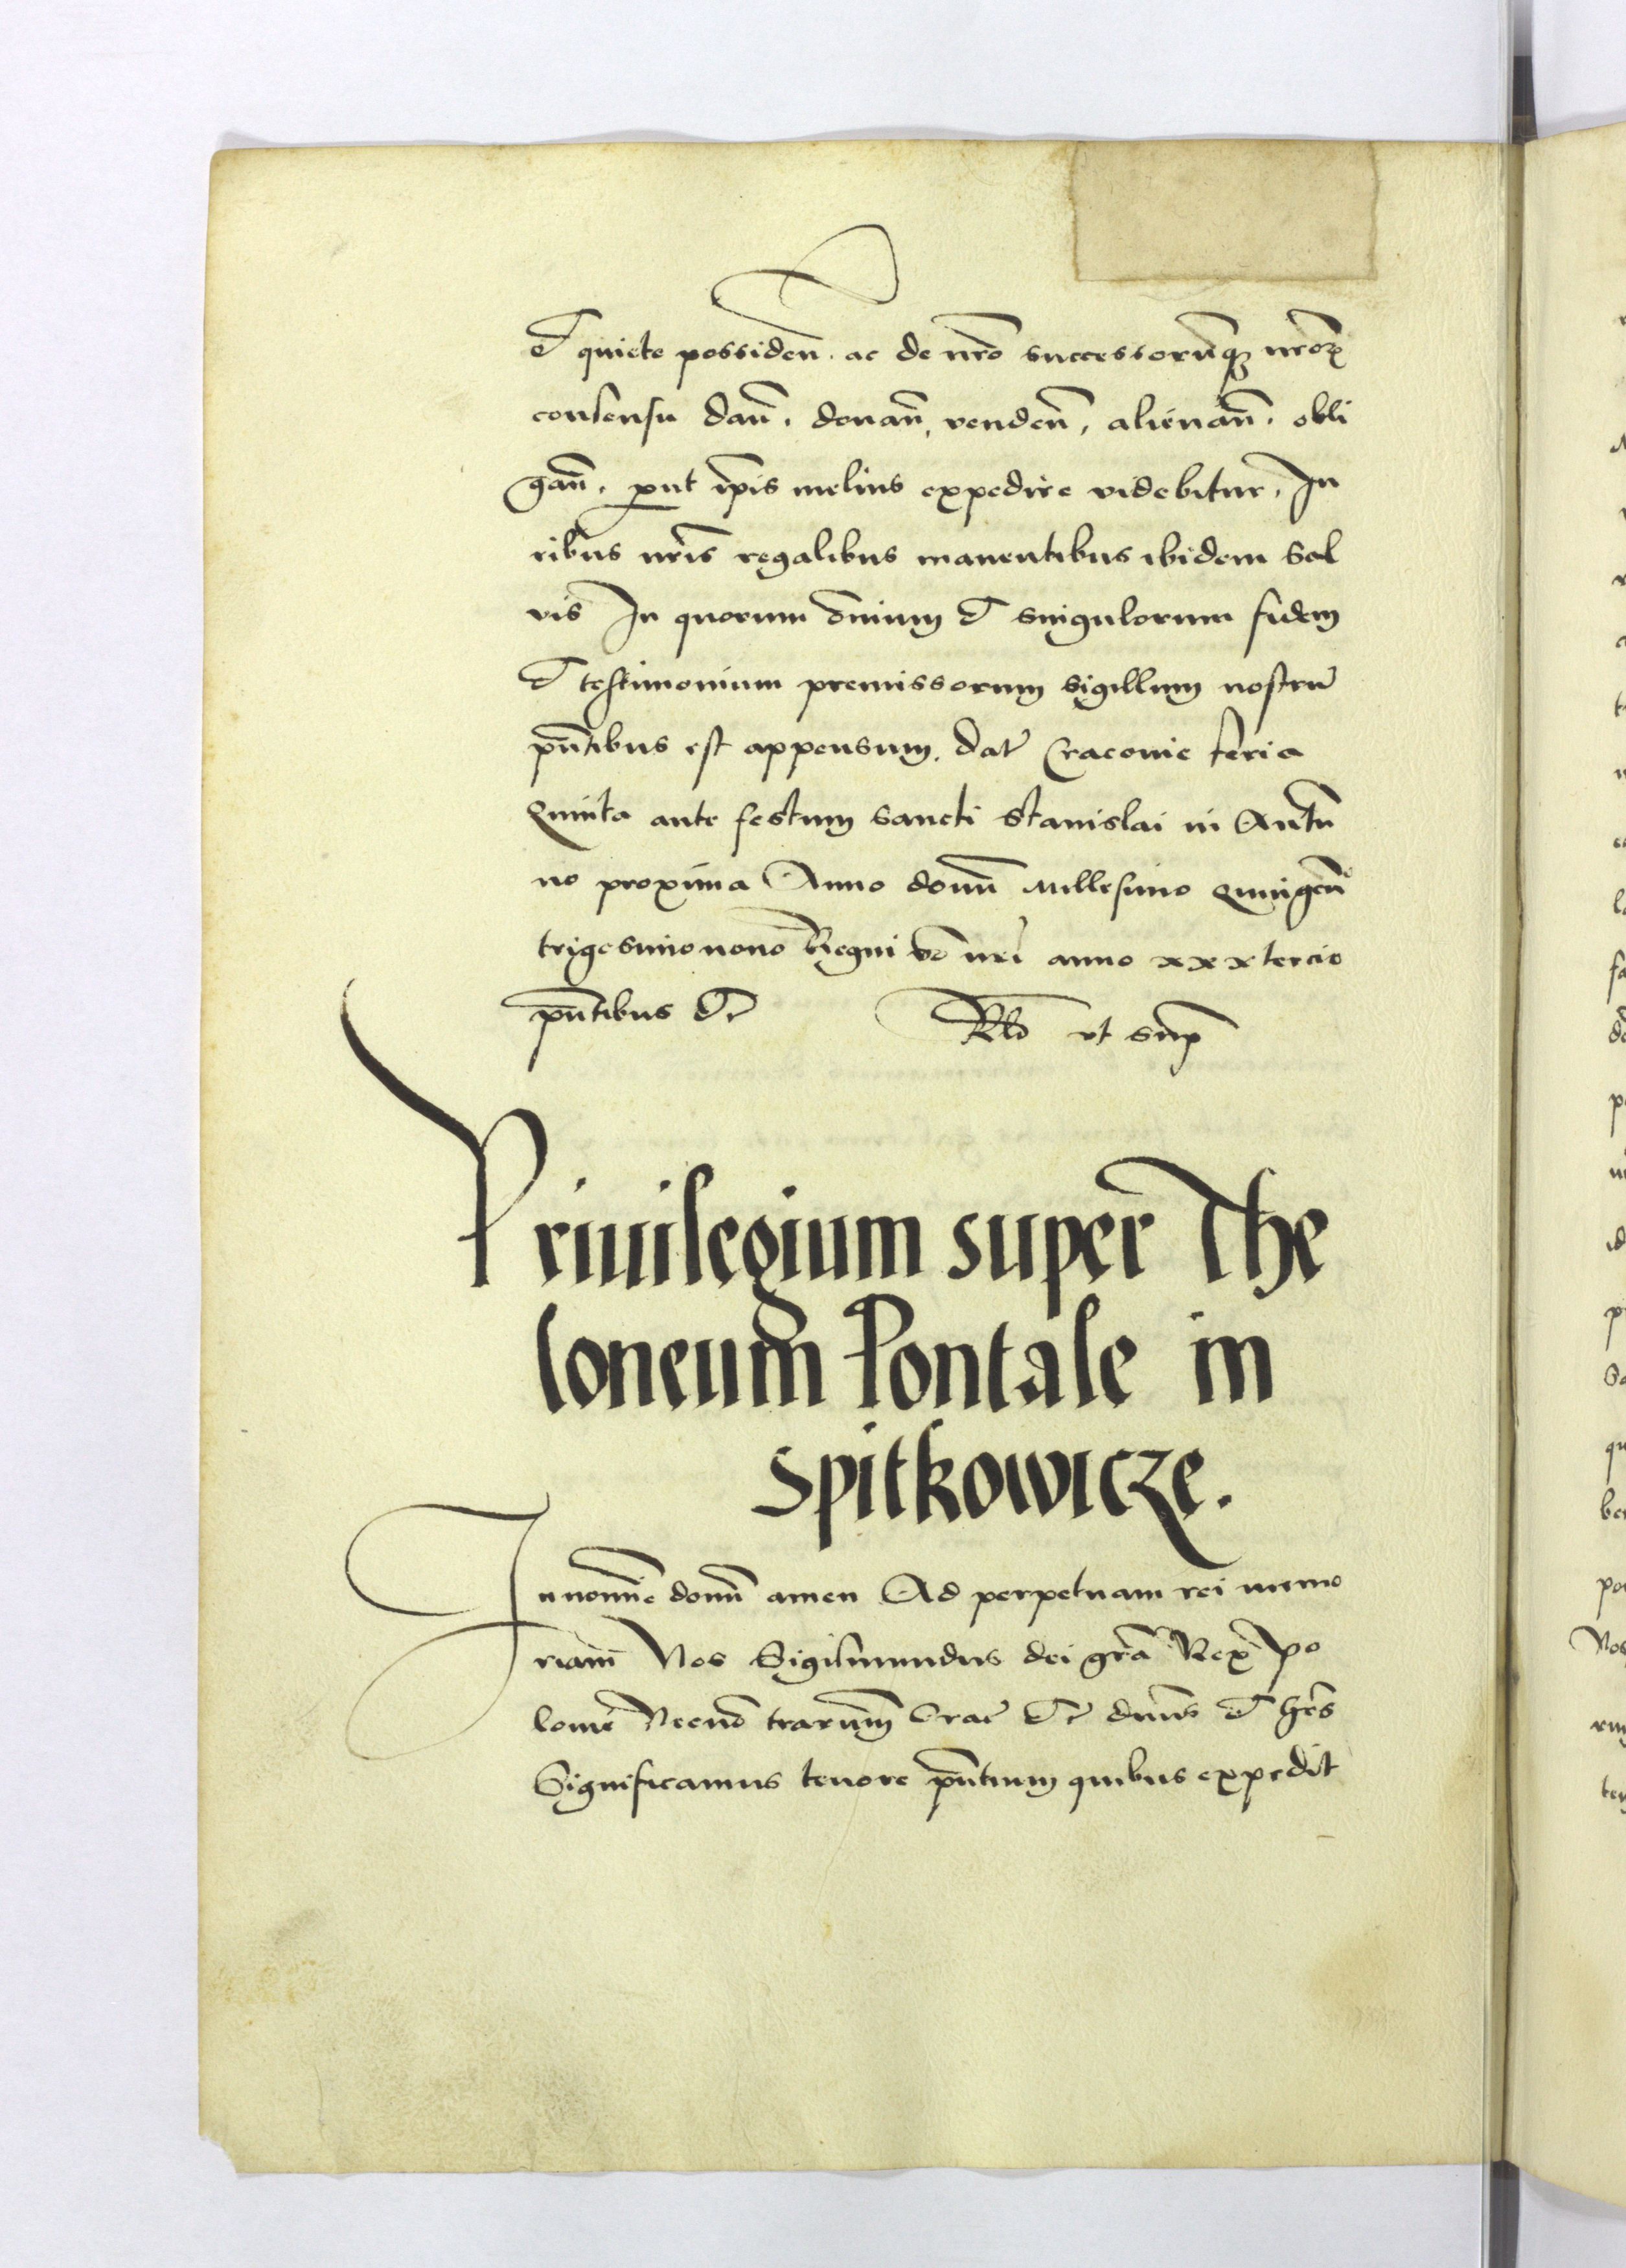 et quiete possiden̄. ac de nr̄o successorūq₃ nr̄oꝝ
consensu dan̄. donan̄, venden̄, alienan̄. obli
gan̄. ꝓut ip̄is melius expedire videbitur, Iu
ribus nr̄is regalibus manentibus ibidem sal
vis In quorum om̄ium et singulorum fidem
et testimonium premissorum sigillum nostrū
pn̄tibus est appensum. dat̄ Cracovie feria
Quinta ante festum sancti Stanislai in Autū
no proxima Anno domī Millesimo Quingen̄
trigesimonono Regni vō nr̄i anno xxx tercio
pn̄tibus etc̄ Rło vt sup̄
Priuilegium super The
loneum Pontale in
Spitkowicze.
In nomīe domī amen Ad perpetuam rei memo
riam Nos Sigismundus dei gr̄a Rex Po
lonie Necnō trarum Crac̄ etc̄ dn̄us et hēs
Significamus tenore pn̄tium quibus expedit